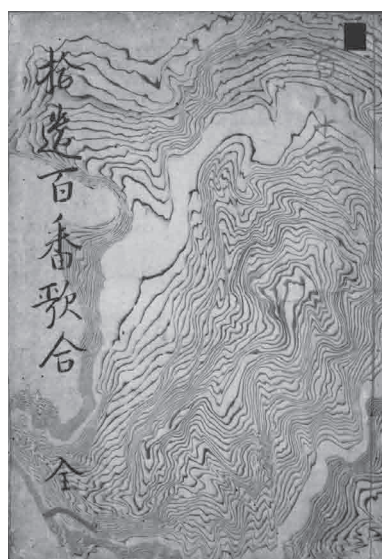 拾遺百番歌合 全